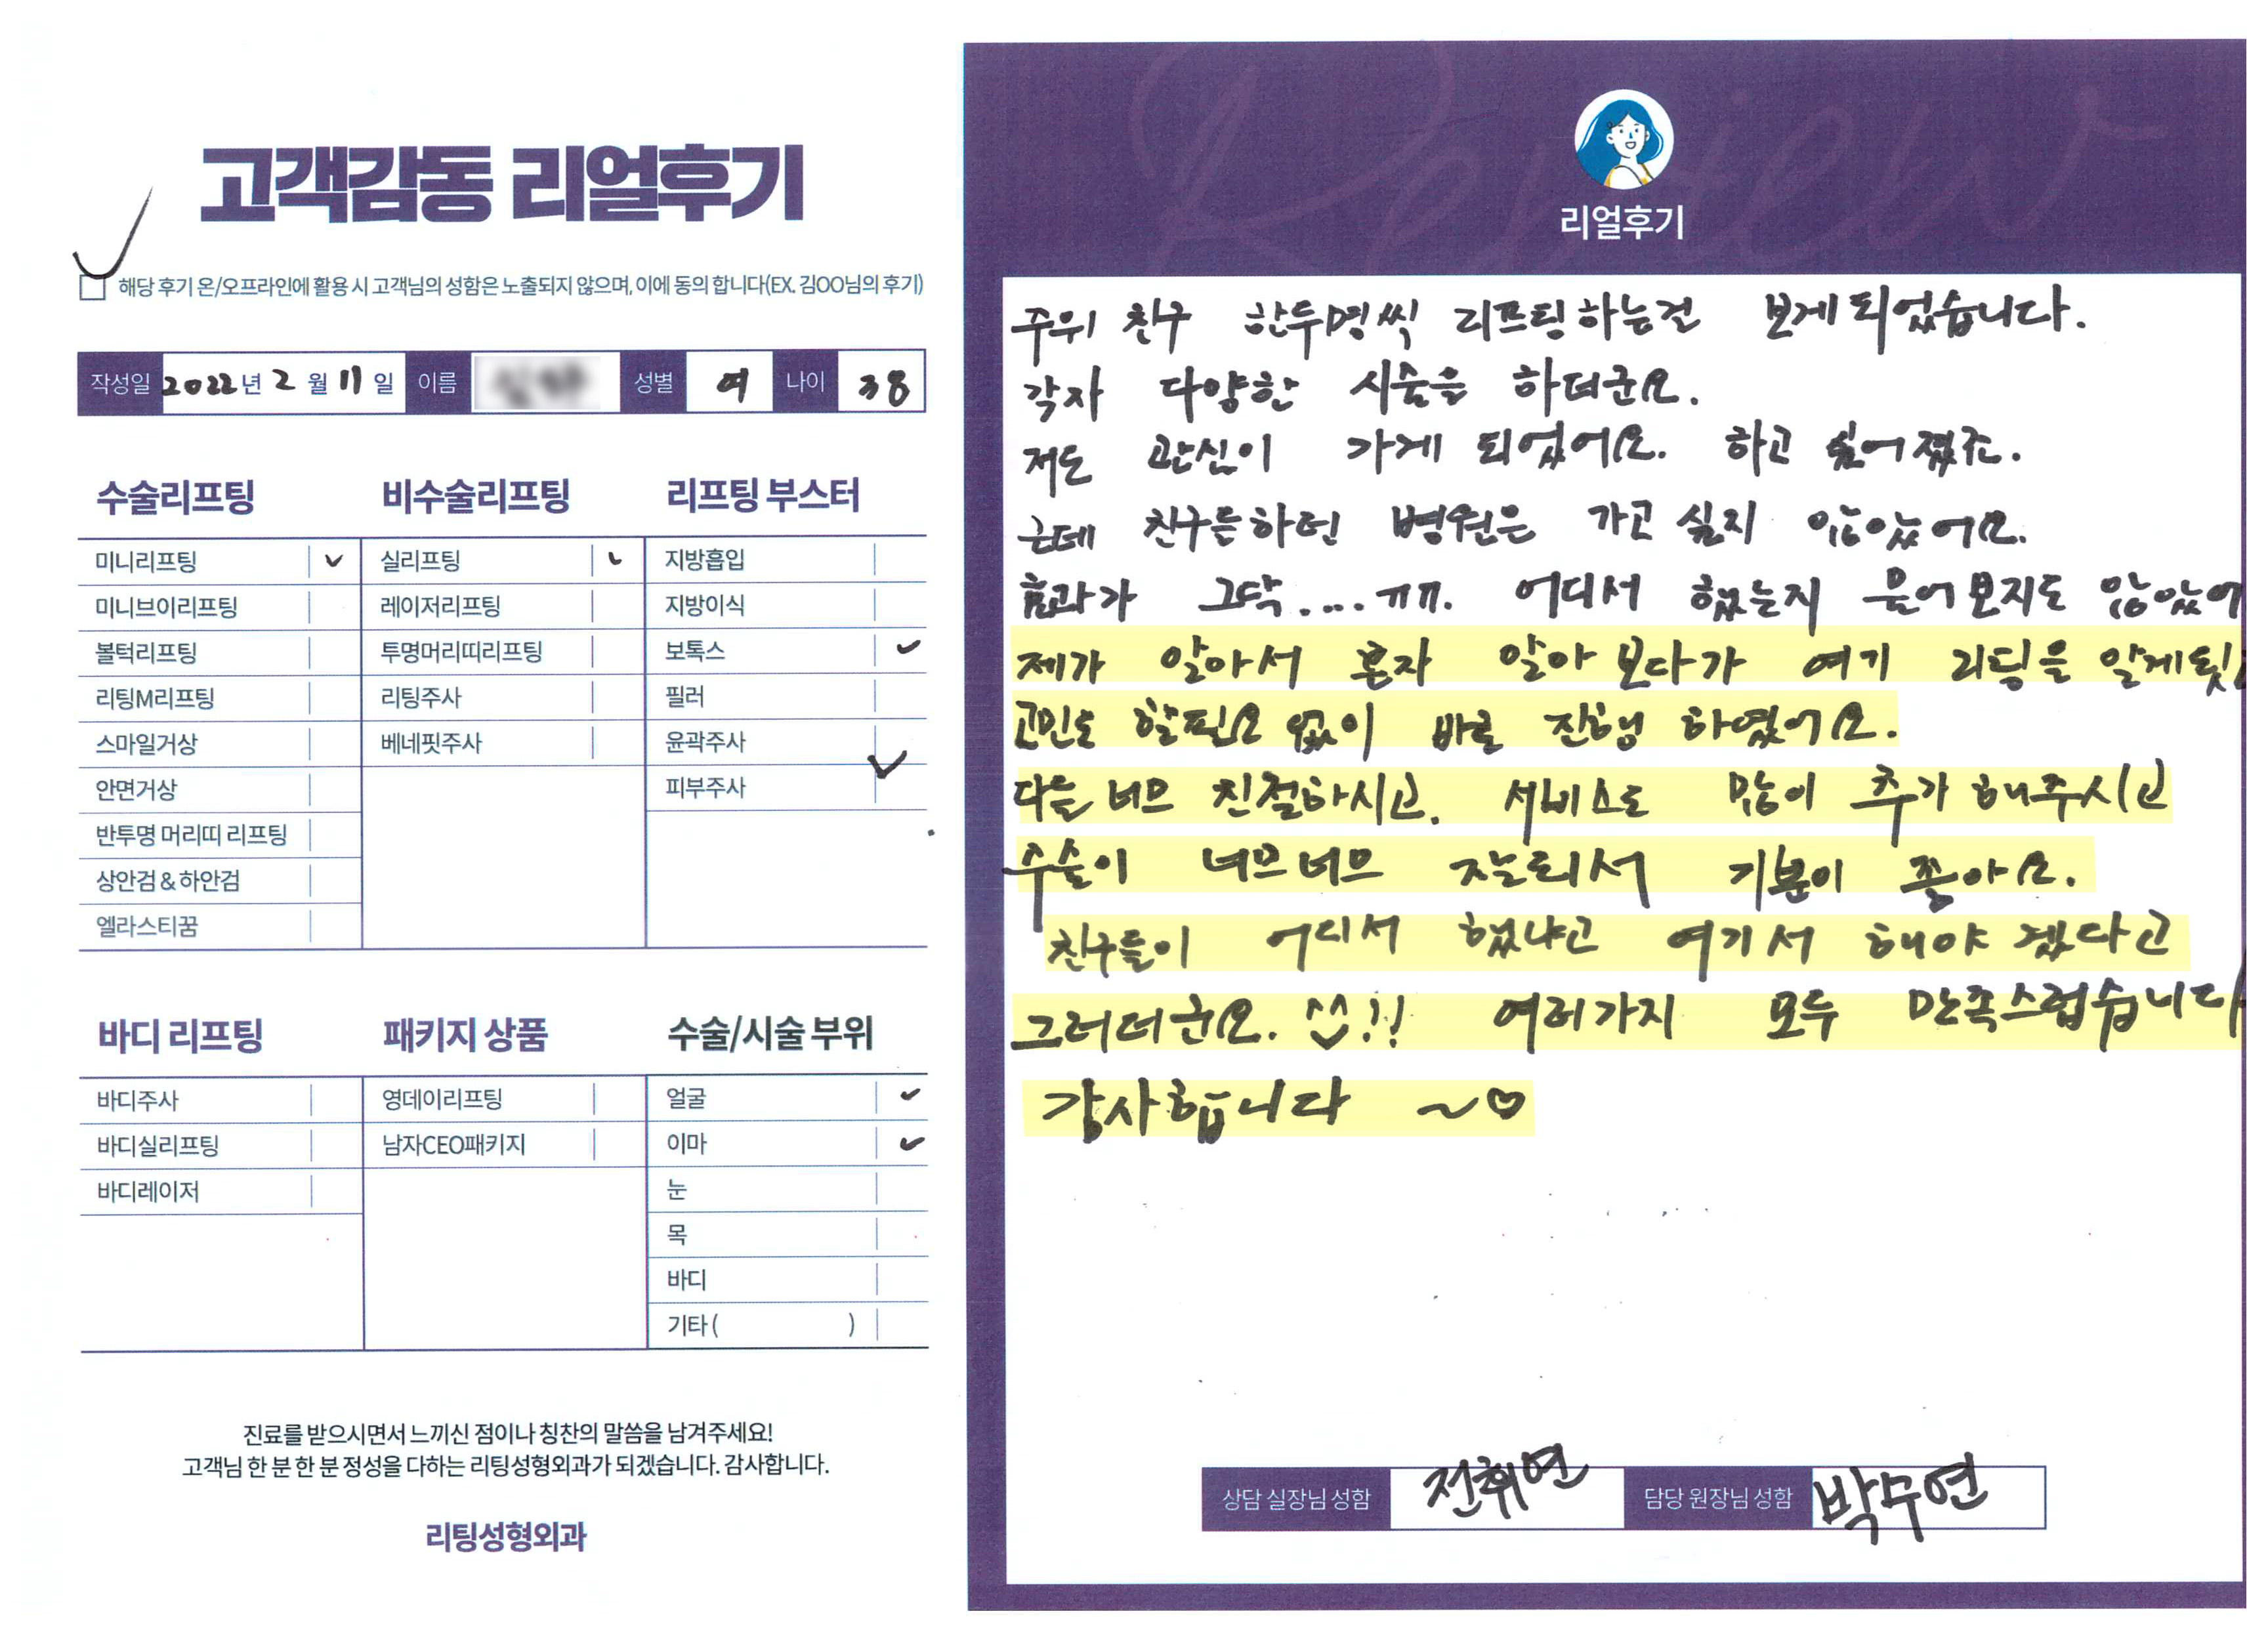 고객감동 리얼후기
해당 후기 온/오프라인에 활용 시 고객님의 성함은 노출되지 않으며, 이에 동의 합니다(EX. 김OO님의 후기)
작성일 2022년 2월 11일 이름 성별 여 나이 38
수술리프팅
미니리프팅
미니브이리프팅
볼턱리프팅
리팅M리프팅
스마일거상
안면거상
반투명 머리띠 리프팅
상안검 & 하안검
엘라스티꿈
비수술리프팅
실리프팅
레이저리프팅
투명머리띠리프팅
리팅주사
베네핏주사
리프팅 부스터
지방흡입
지방이식
보톡스
필러
윤곽주사
피부주사
바디 리프팅
바디주사
바디실리프팅
바디레이저
패키지 상품
영데이리프팅
남자CEO패키지
수술/시술 부위
얼굴
이마
눈
목
바디
기타 ( )
진료를 받으시면서 느끼신 점이나 칭찬의 말씀을 남겨주세요!
고객님 한 분 한 분 정성을 다하는 리팅성형외과가 되겠습니다. 감사합니다.
리팅성형외과
Review
리얼후기
주위 친구 한두명씩 리프팅하는걸 보게되었습니다.
각자 다양한 시술을 하더군요.
저도 관심이 가게 되었어요. 하고 싶어졌죠.
근데 친구들하던 병원은 가고싶지 않았어요.
효과가 그닥....ㅠㅠ. 어디서 했는지 물어보지도 않았어
제가 알아서 혼자 알아보다가 여기 리팅을 알게됫
고민도 할필요없이 바로 진행 하였어요.
다들 너므 친절하시고. 서비스도 많이 추가해주시고
수술이 너므너므 잘되서 기분이 좋아요.
친구들이 어디서 했냐고 여기서 해야겠다고
그러더군요. ^^!! 여러가지 모두 만족스럽습니다
감사합니다 ~♡
상담 실장님 성함 전휘연 담당 원장님 성함 박무연